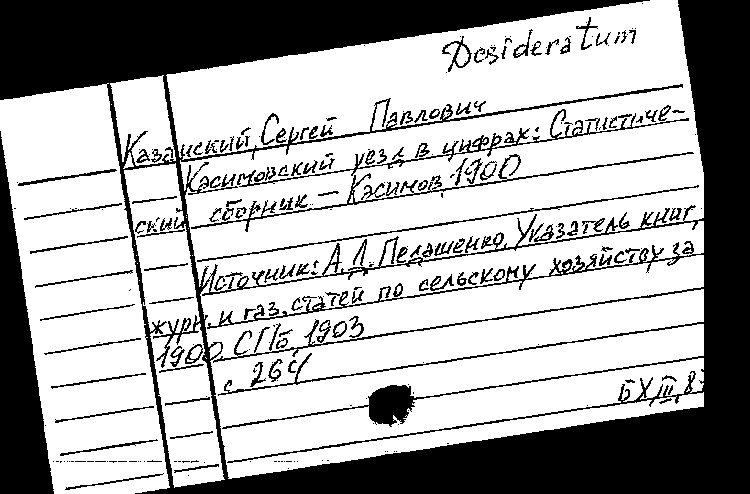 Desideratum
Казанский, Сергей Павлович
Касимовский уезд в цифрах: Статистиче-
ский сборник. — Касимов, 1900
Источник: А.Д. Педашенко. Указатель книг,
журн. и газ. статей по сельскому хозяйству за
1900. СПб, 1903
с. 264
БХ, III, 87